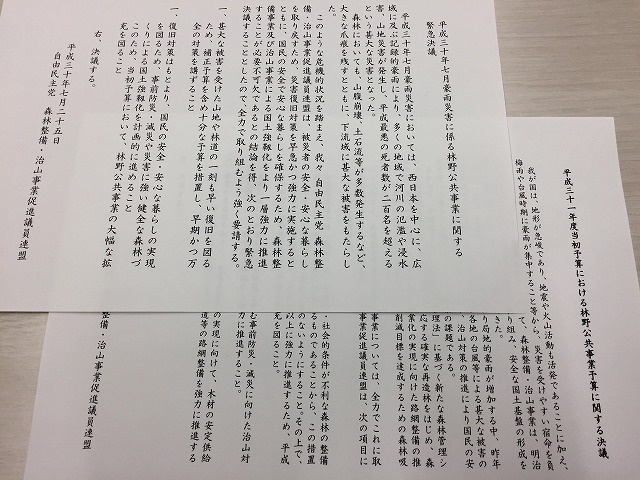 平成三十年七月豪雨災害に係る林野公共事業に関する
緊急決議
平成三十年七月豪雨災害においては、西日本を中心に、広
域に及ぶ記録的豪雨により、多くの地域で河川の氾濫や浸水
害、山地災害が発生し、平成最悪の死者数が二百名を超える
という甚大な災害となった。
森林においても、山腹崩壊、土石流等が多数発生するなど、
大きな爪痕を残すとともに、下流域に甚大な被害をもたらし
た。
このような危機的状況を踏まえ、我々 自由民主党 森林整
備・治山事業促進議員連盟は、被災者の安全・安心な暮らし
を取り戻すため、災害復旧対策を早急かつ強力に実施すると
ともに、国民の安全で安心な暮らしを確保するため、森林整
備事業及び治山事業による国土強靱化をより一層強力に推進
することが必要不可欠であるとの結論を得、次のとおり緊急
決議することとしたので、全力で取り組むよう強く要請する。
一、甚大な被害を受けた山地や林道の一刻も早い復旧を図る
ため、補正予算を含め十分な予算を措置し、早期かつ万
全の対策を講ずること
一、復旧対策はもとより、国民の安全・安心な暮らしの実現
を図るため、事前防災・減災や災害に強い健全な森林づ
くりによる国土強靱化を計画的に進めること
このため、当初予算において、林野公共事業の大幅な拡
充を図ること
右、決議する。
平成三十年七月二十五日
自由民主党 森林整備・治山事業促進議員連盟
平成三十一年度当初予算における林野公共事業予算に関する決議
我が国は、地形が急峻であり、地震や火山活動も活発であることに加え、
梅雨や台風時期に豪雨が集中すること等から、災害を受けやすい宿命を負
て、森林整備・治山事業は、明治
り組み、安全な国土基盤の形成を
きた。
り局地的豪雨が増加する中、昨年
各地の台風等による甚大な被害の
、治山対策の推進により国民の安
の課題である。
理法に基づく新たな森林管理シ
応する確実な再造林をはじめ、森
業化の実現に向けた路網整備の推
削減目標を達成するための森林吸
事業については、全力でこれに取
事業促進議員連盟は、次の項目に
・社会的条件が不利な森林の整備
るものであることから、この措置
のないようにすること。その上で、
以上に強力に推進するため、平成
充を図ること。
む事前防災・減災に向けた治山対
力に推進すること。
の実現に向けて、木材の安定供給
道等の路網整備を強力に推進する
整備・治山事業促進議員連盟